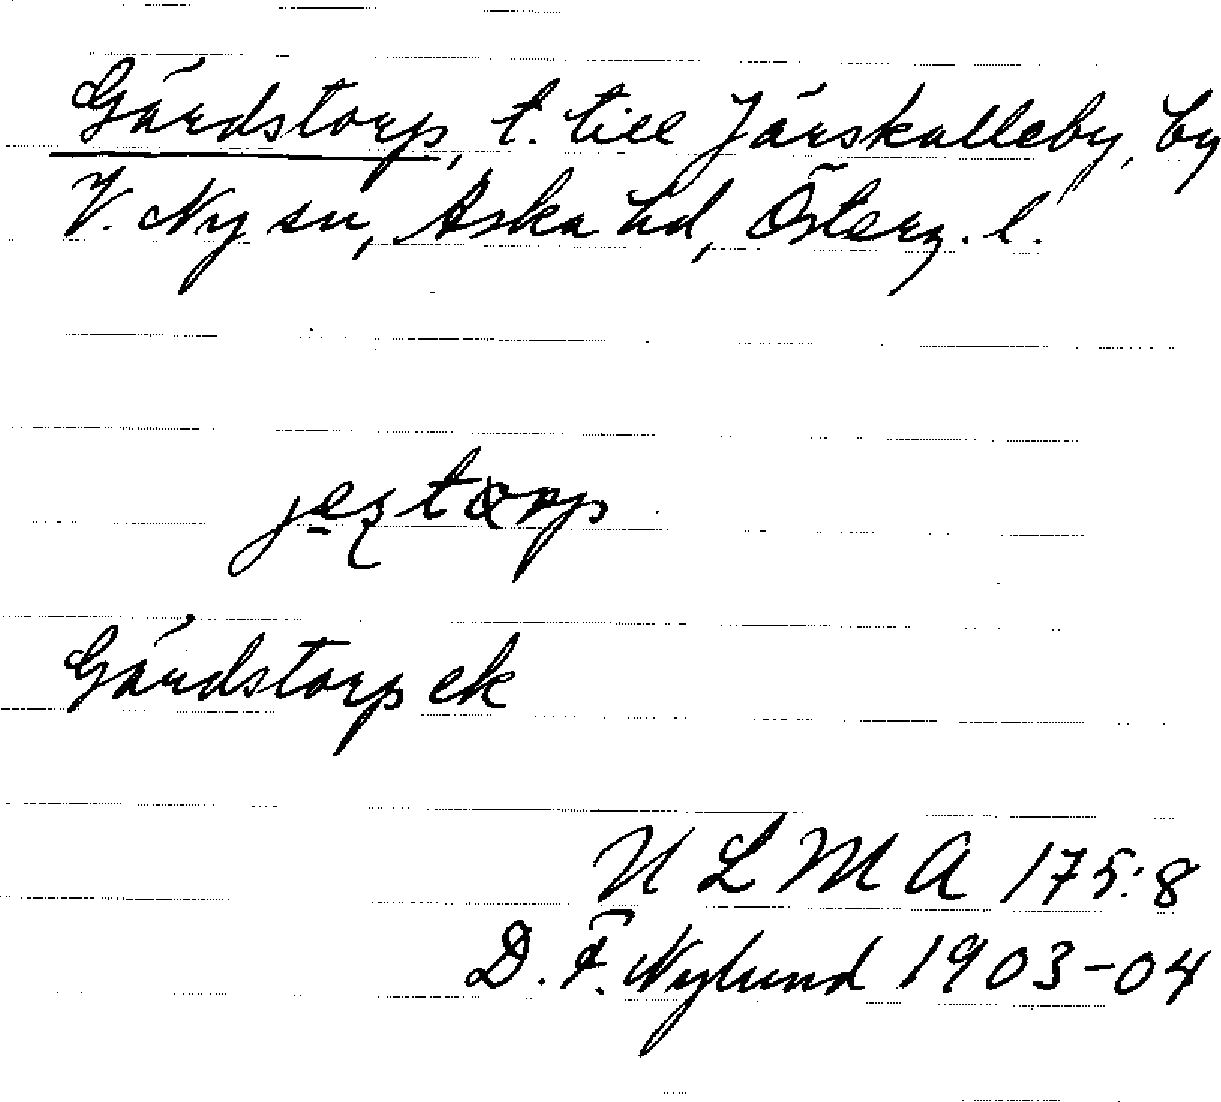 Gärdstorp, t. till Järskalleby, by
V. Ny sn, Aska hd, Österg. l.
Gärdstorp ek
ULMA 175:8
D. F. Nylund 1903-04